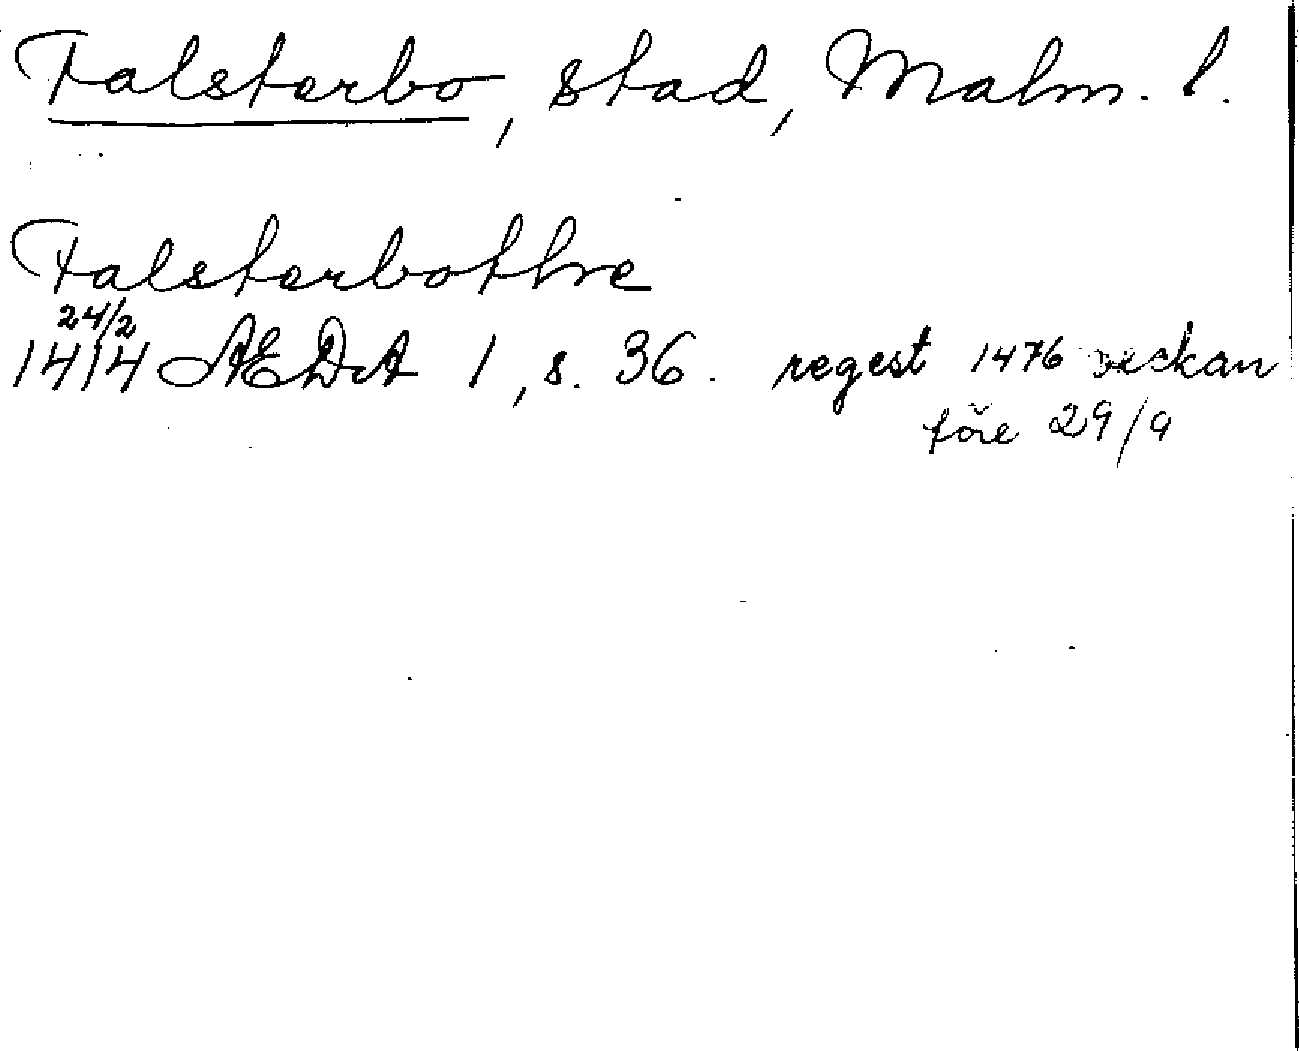 Falsterbo, stad, Malm. l.
Falsterbothre
24/2
1414 ÆDA 1, s. 36. regest 1476 veckan
före 29/9